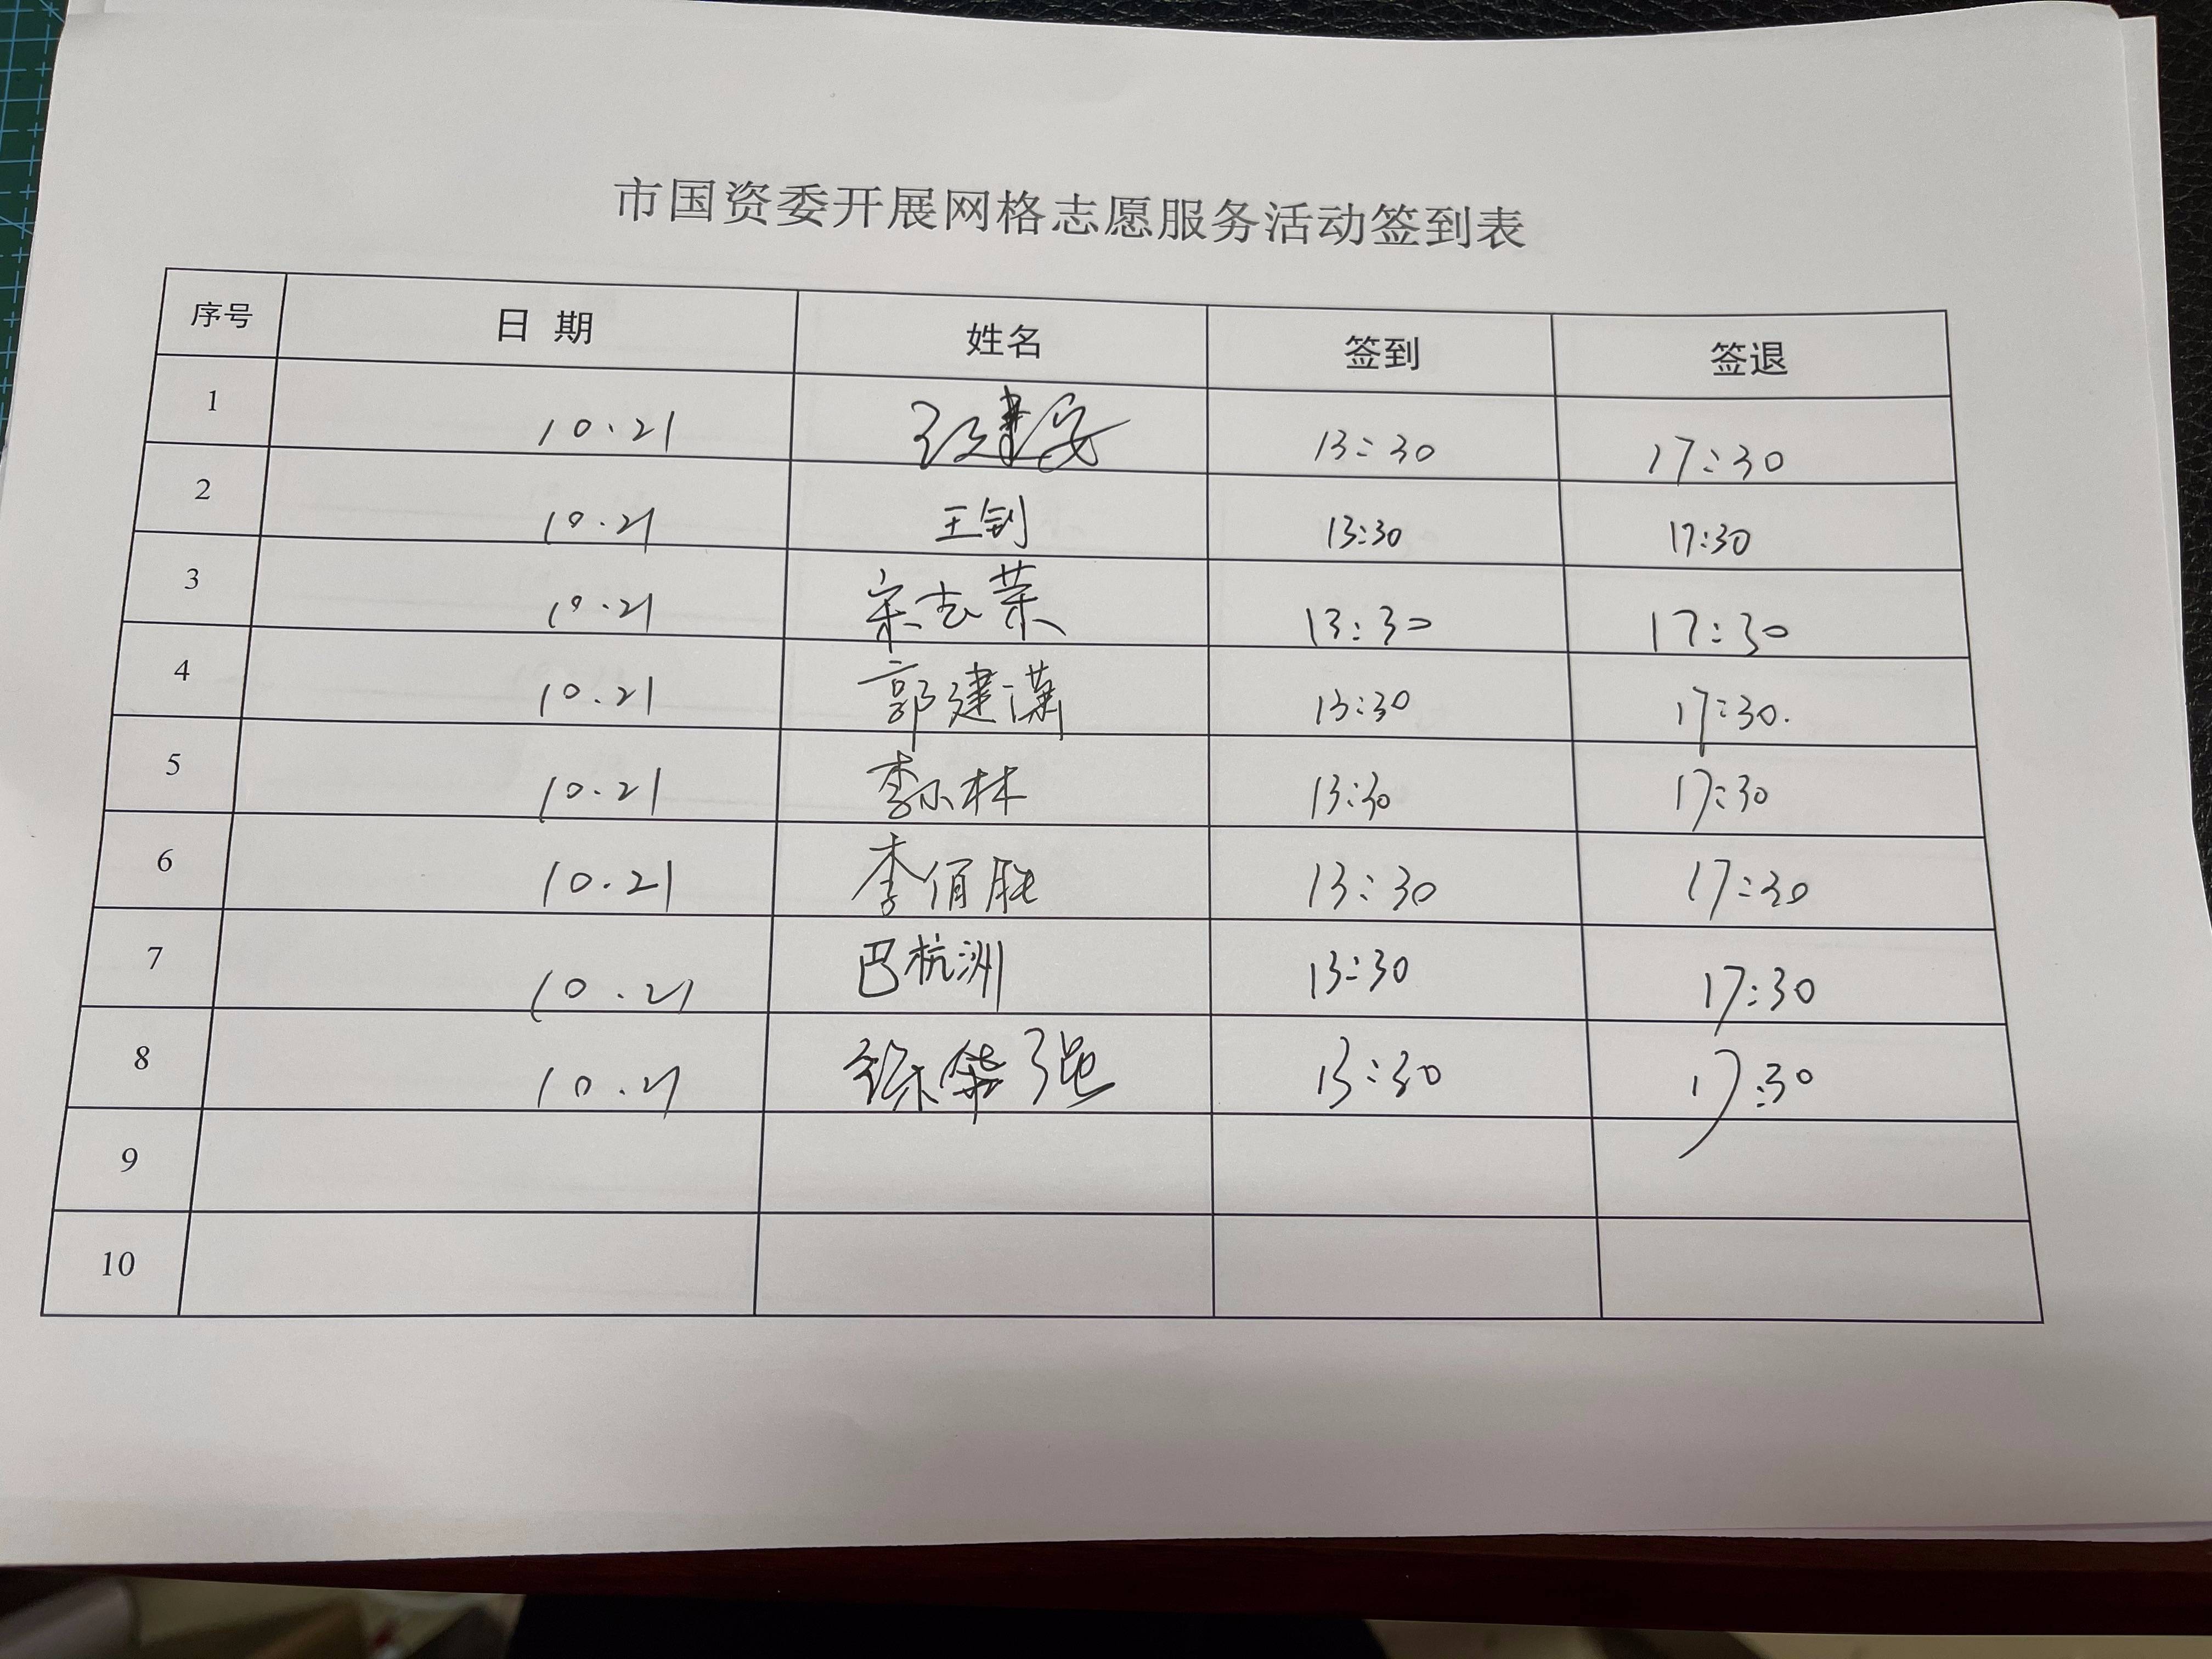 市国资委开展网格志愿服务活动签到表
序号 日 期 姓名 签到 签退
1 10.21 13:30 17:30
2 10.21 王钊 13:30 17:30
3 10.21 宋志荣 13:30 17:30
4 10.21 郭建潇 13:30 17:30.
5 10.21 李小林 13:30 17:30
6 10.21 李佰胜 13:30 17:30
7 10.21 巴杭洲 13:30 17:30
8 10.21 徐华强 13:30 17:30
9
10